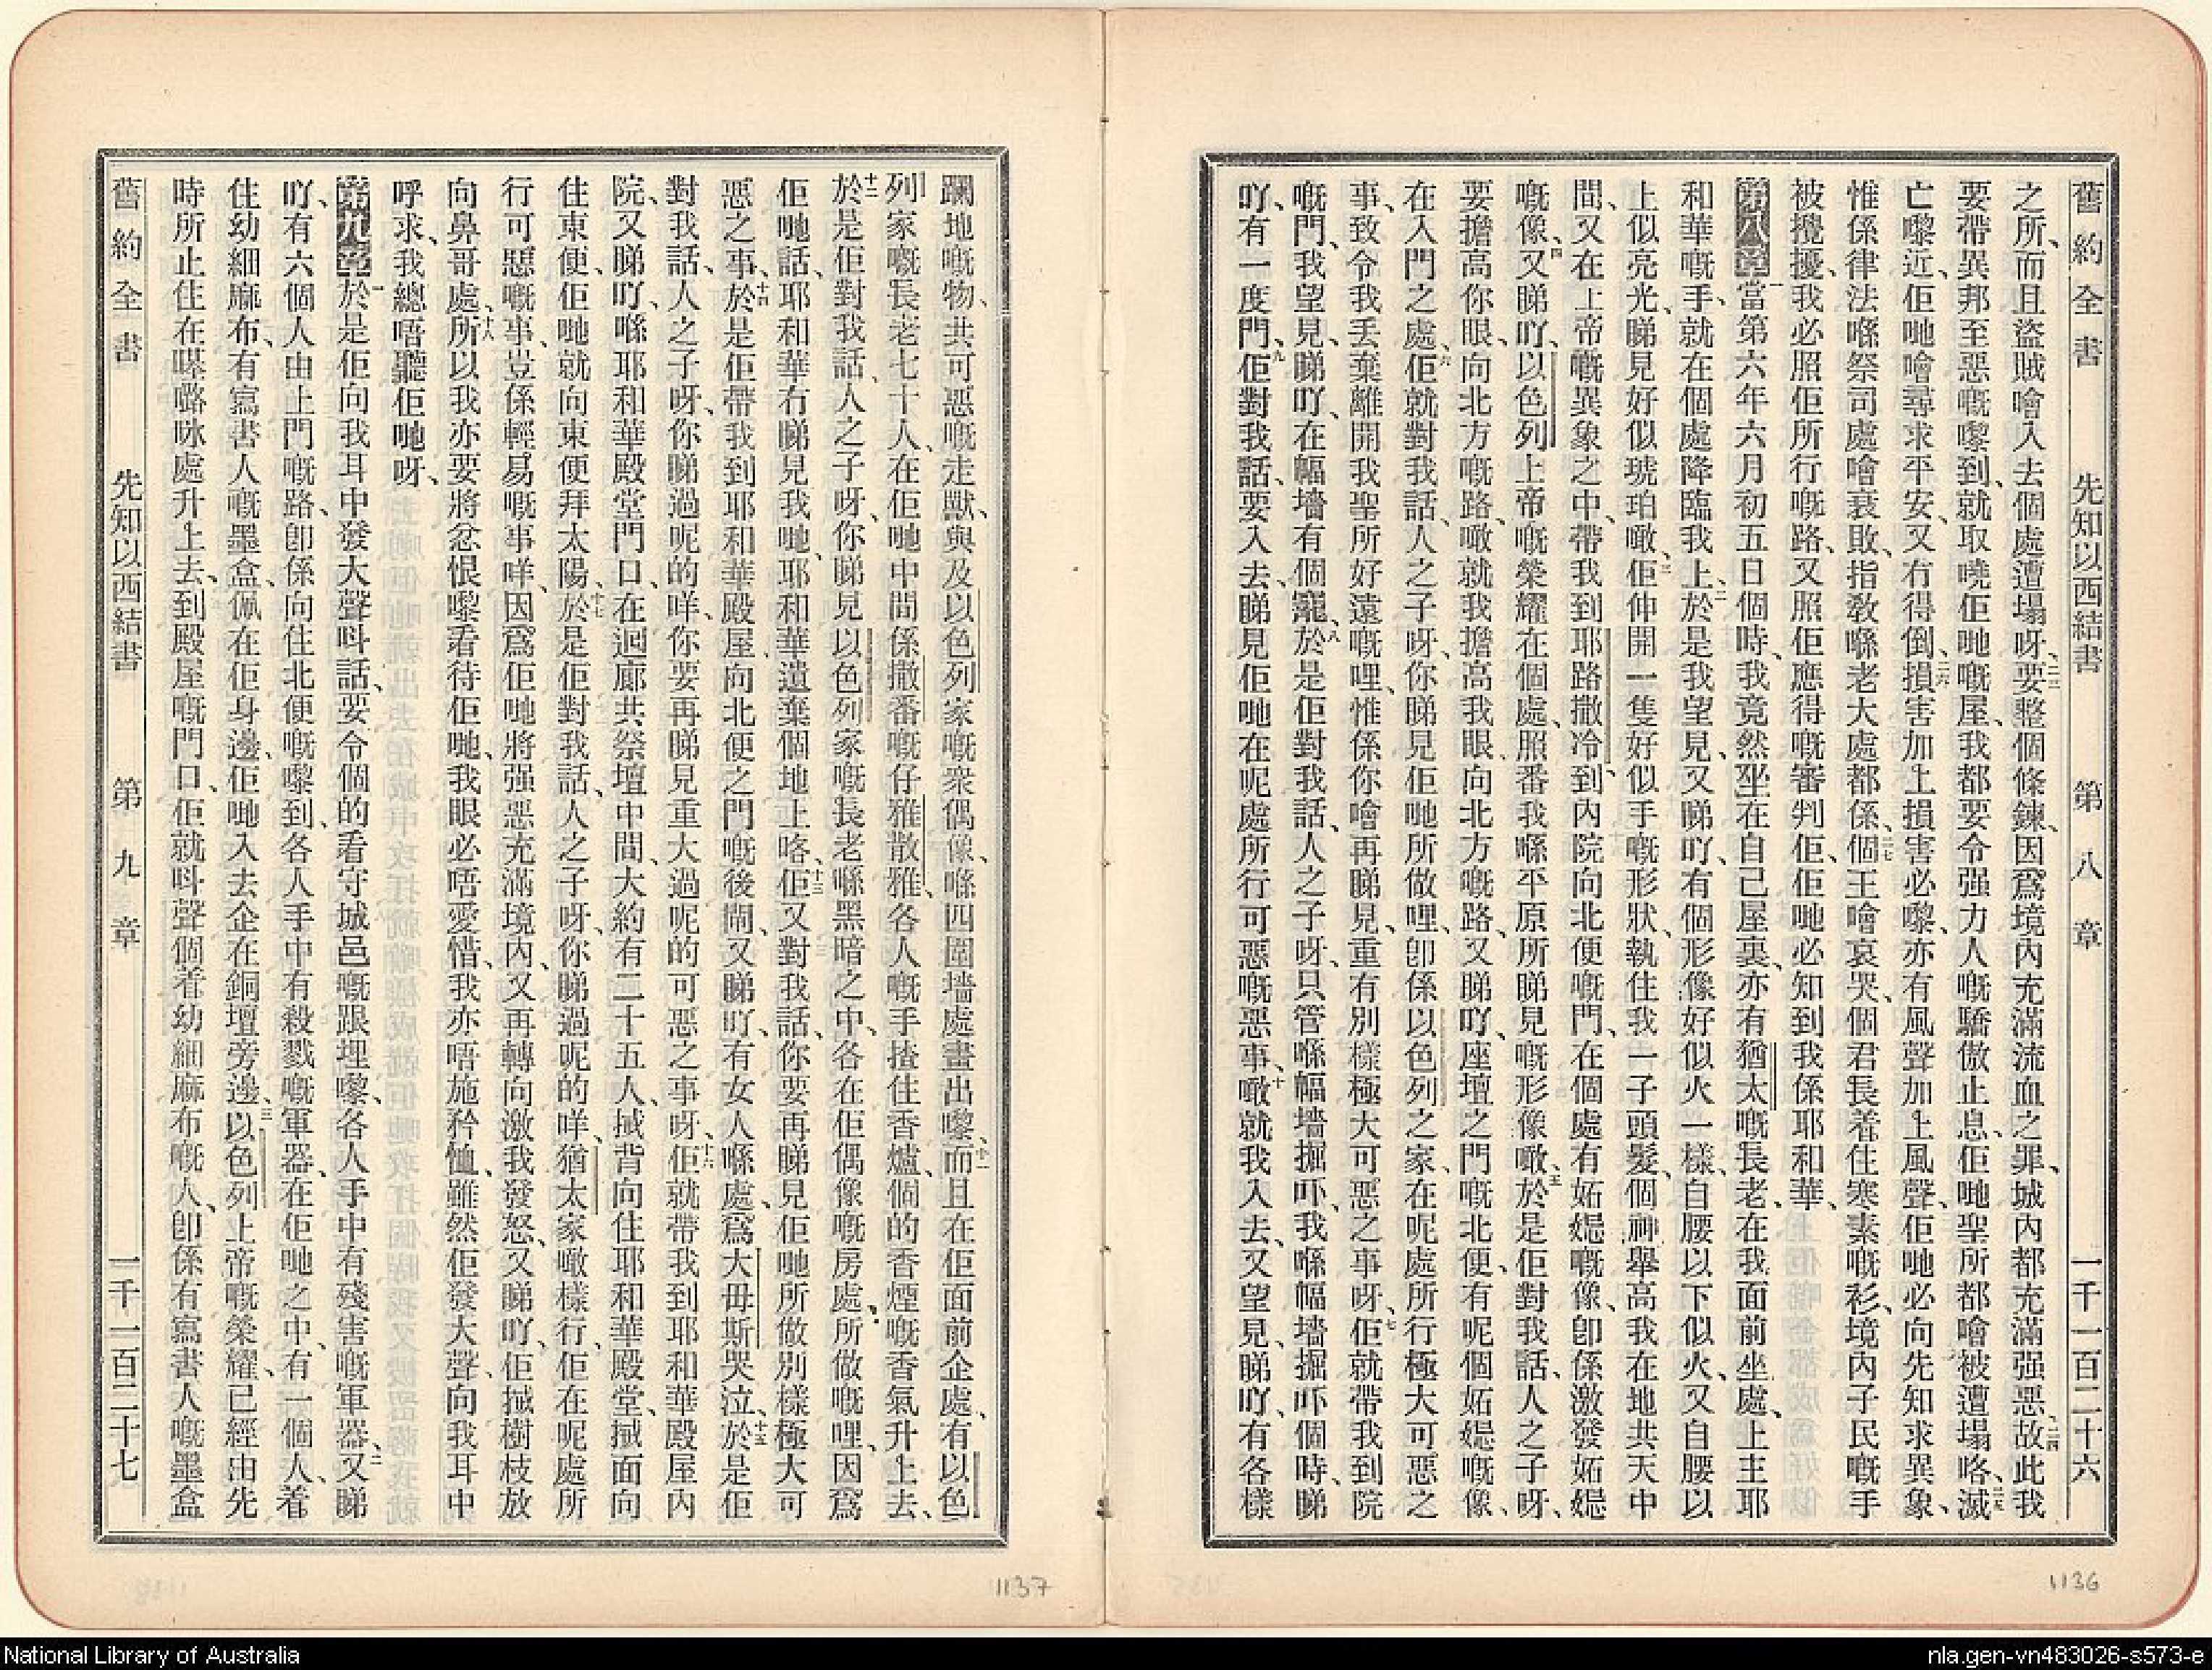 舊約全書 先知以西結書 第八章 一千一百二十六
之所、而且盜賊噲入去個處遭塌呀、二三要整個條鍊、因爲境內充滿流血之罪、城內都充滿强惡、二四故此我
要帶異邦至惡嘅嚟到、就取曉佢哋嘅屋、我都要令强力人嘅驕傲止息、佢哋聖所都噲被遭塌咯、二五滅
亡嚟近、佢哋噲尋求平安、又冇得倒、二六損害加上損害必嚟、亦有風聲加上風聲、佢哋必向先知求異象、
惟係律法喺祭司處噲衰敗、指敎喺老大處都係、二七個王噲哀哭、個君長着住寒素嘅衫、境內子民嘅手
被攪擾、我必照佢所行嘅路、又照佢應得嘅審判佢、佢哋必知到我係耶和華、
第八章一當第六年六月初五日個時、我竟然坐在自己屋裏、亦有猶太嘅長老、在我面前坐處、上主耶
和華嘅手、就在個處降臨我上、二於是我望見、又睇吖、有個形像好似火一樣、自腰以下似火、又自腰以
上似亮光、睇見好似琥珀噉、三佢伸開一隻好似手嘅形狀、執住我一子頭髮、個神舉高我在地共天中
間、又在上帝嘅異象之中、帶我到耶路撒冷、到內院向北便嘅門、在個處有妬嫕嘅像、卽係激發妬嫕
嘅像、四又睇吖、以色列上帝嘅榮耀在個處、照番我喺平原所睇見嘅形像噉、五於是佢對我話、人之子呀、
要擔高你眼、向北方嘅路、噉就我擔高我眼、向北方嘅路、又睇吖、座壇之門嘅北便、有呢個妬嫕嘅像、
在入門之處、六佢就對我話、人之子呀、你睇見佢哋所做哩、卽係以色列之家、在呢處所行極大可惡之
事、致令我丢棄離開我聖所好遠嘅哩、惟係你噲再睇見、重有別樣極大可惡之事呀、七佢就帶我到院
嘅門、我望見、睇吖、在幅墻有個窿、八於是佢對我話、人之子呀、只管喺幅墻掘吓、我喺幅墻掘吓個時、睇
吖、有一度門、九佢對我話、要入去、睇見佢哋在呢處所行可惡嘅惡事、十噉就我入去、又望見、睇吖、有各樣
躝地嘅物、共可惡嘅走獸、與及以色列家嘅衆偶像、喺四圍墻處畫出嚟、十一而且在佢面前企處、有以色
列家嘅長老七十人、在佢哋中間係撒番嘅仔雅散雅、各人嘅手揸住香爐、個的香煙嘅香氣升上去、
十二於是佢對我話、人之子呀、你睇見以色列家嘅長老喺黑暗之中、各在佢偶像嘅房處、所做嘅哩、因爲
佢哋話、耶和華冇睇見我哋、耶和華遺棄個地上咯、十三佢又對我話、你要再睇見佢哋所做別樣極大可
惡之事、十四於是佢帶我到耶和華殿屋向北便之門嘅後閙、又睇吖、有女人喺處、爲大毋斯哭泣、十五於是佢
對我話、人之子呀、你睇過呢的咩、你要再睇見重大過呢的可惡之事呀、十六佢就帶我到耶和華殿屋內
院、又睇吖、喺耶和華殿堂門口、在迴廊共祭壇中間、大約有二十五人、搣背向住耶和華殿堂、搣面向
住東便、佢哋就向東便拜太陽、十七於是佢對我話、人之子呀、你睇過呢的咩、猶太家噉樣行、佢在呢處所
行可惡嘅事、豈係輕易嘅事咩、因爲佢哋將强惡充滿境內、又再轉向激我發怒、又睇吖、佢搣樹枝放
向鼻哥處、十八所以我亦要將忿恨嚟看待佢哋、我眼必唔愛惜、我亦唔施矜恤、雖然佢發大聲、向我耳中
呼求、我總唔聽佢哋呀、
第九章一於是佢向我耳中發大聲呌話、要令個的看守城邑嘅跟埋嚟、各人手中有殘害嘅軍器、二又睇
吖、有六個人由上門嘅路、卽係向住北便嘅嚟到、各人手中有殺戮嘅軍器、在佢哋之中、有一個人、着
住幼細麻布、有寫書人嘅墨盒、佩在佢身邊、佢哋入去企在銅壇旁邊、三以色列上帝嘅榮耀、已經由先
時所止住在㗎嚕㖠處升上去、到殿屋嘅門口、佢就呌聲個着幼細麻布嘅人、卽係有寫書人嘅墨盒
舊約全書 先知以西結書 第九章 一千一百二十七
1137
1136
National Library of Australia
nla.gen-vn483026-s573-e